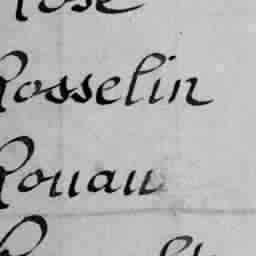 Rose
Rosselin
Rouau